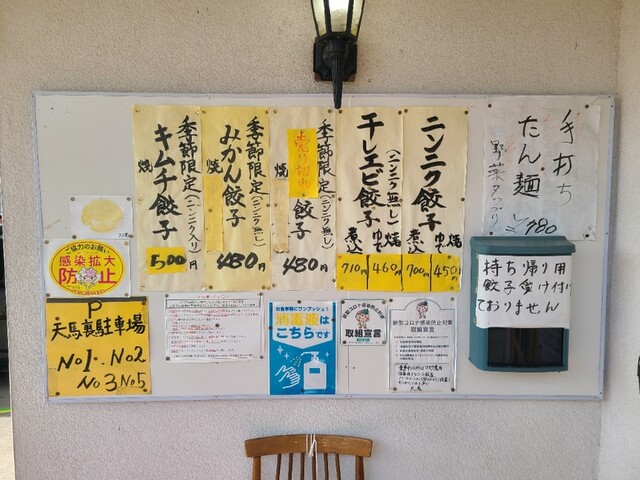 手打ち
たん麺
野菜タップリ
￥780
ニンニク餃子
焼 450円
ゆで
煮込 700円
干しエビ餃子
(ニンニク無し)
焼 460円
ゆで
煮込 710円
季節限定(ニンニク無し)
売り切れ
餃子
焼
480円
季節限定(ニンニク無し)
みかん餃子
焼
480円
季節限定(ニンニク入り)
キムチ餃子
焼
500円
持ち帰り用
餃子受け付け
ておりません
ご協力のお願い
感染拡大
防止
P
天馬裏駐車場
No1. No2
No3 No5
お食事前にワンプッシュ!
消毒液は
こちらです
新型コロナ感染防止対策
取組宣言
新型コロナ感染防止対策
取組宣言